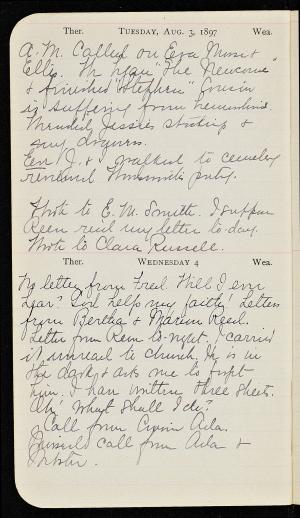 Ther. TUESDAY, AUG. 3, 1897 Wea.
A. M. Called on Eva Munse &
Ellis. Mr. "The Newcome"
& finished "Stephen" Crucin
is suffering from
Mended Jessie's stocking &
my drawers.
Eve J. & I walked to cemetery
reviewed party.
Wrote to E. M. Smith. I suppose
Rem rec'd my letter to-day.
Wrote to Clara Russell.
Ther. WEDNESDAY 4 Wea.
No letter from Fred. Will I ever
hear? God help my faith! Letters
from Bertha & Marion Reed.
Letter from Rem to-night. I carried
it unread to church. He is in
the dark & asks me to forget
him. I have written three sheets.
Oh! What Shall I do?
Call from Cousin Ada.
Missed call from Ada &